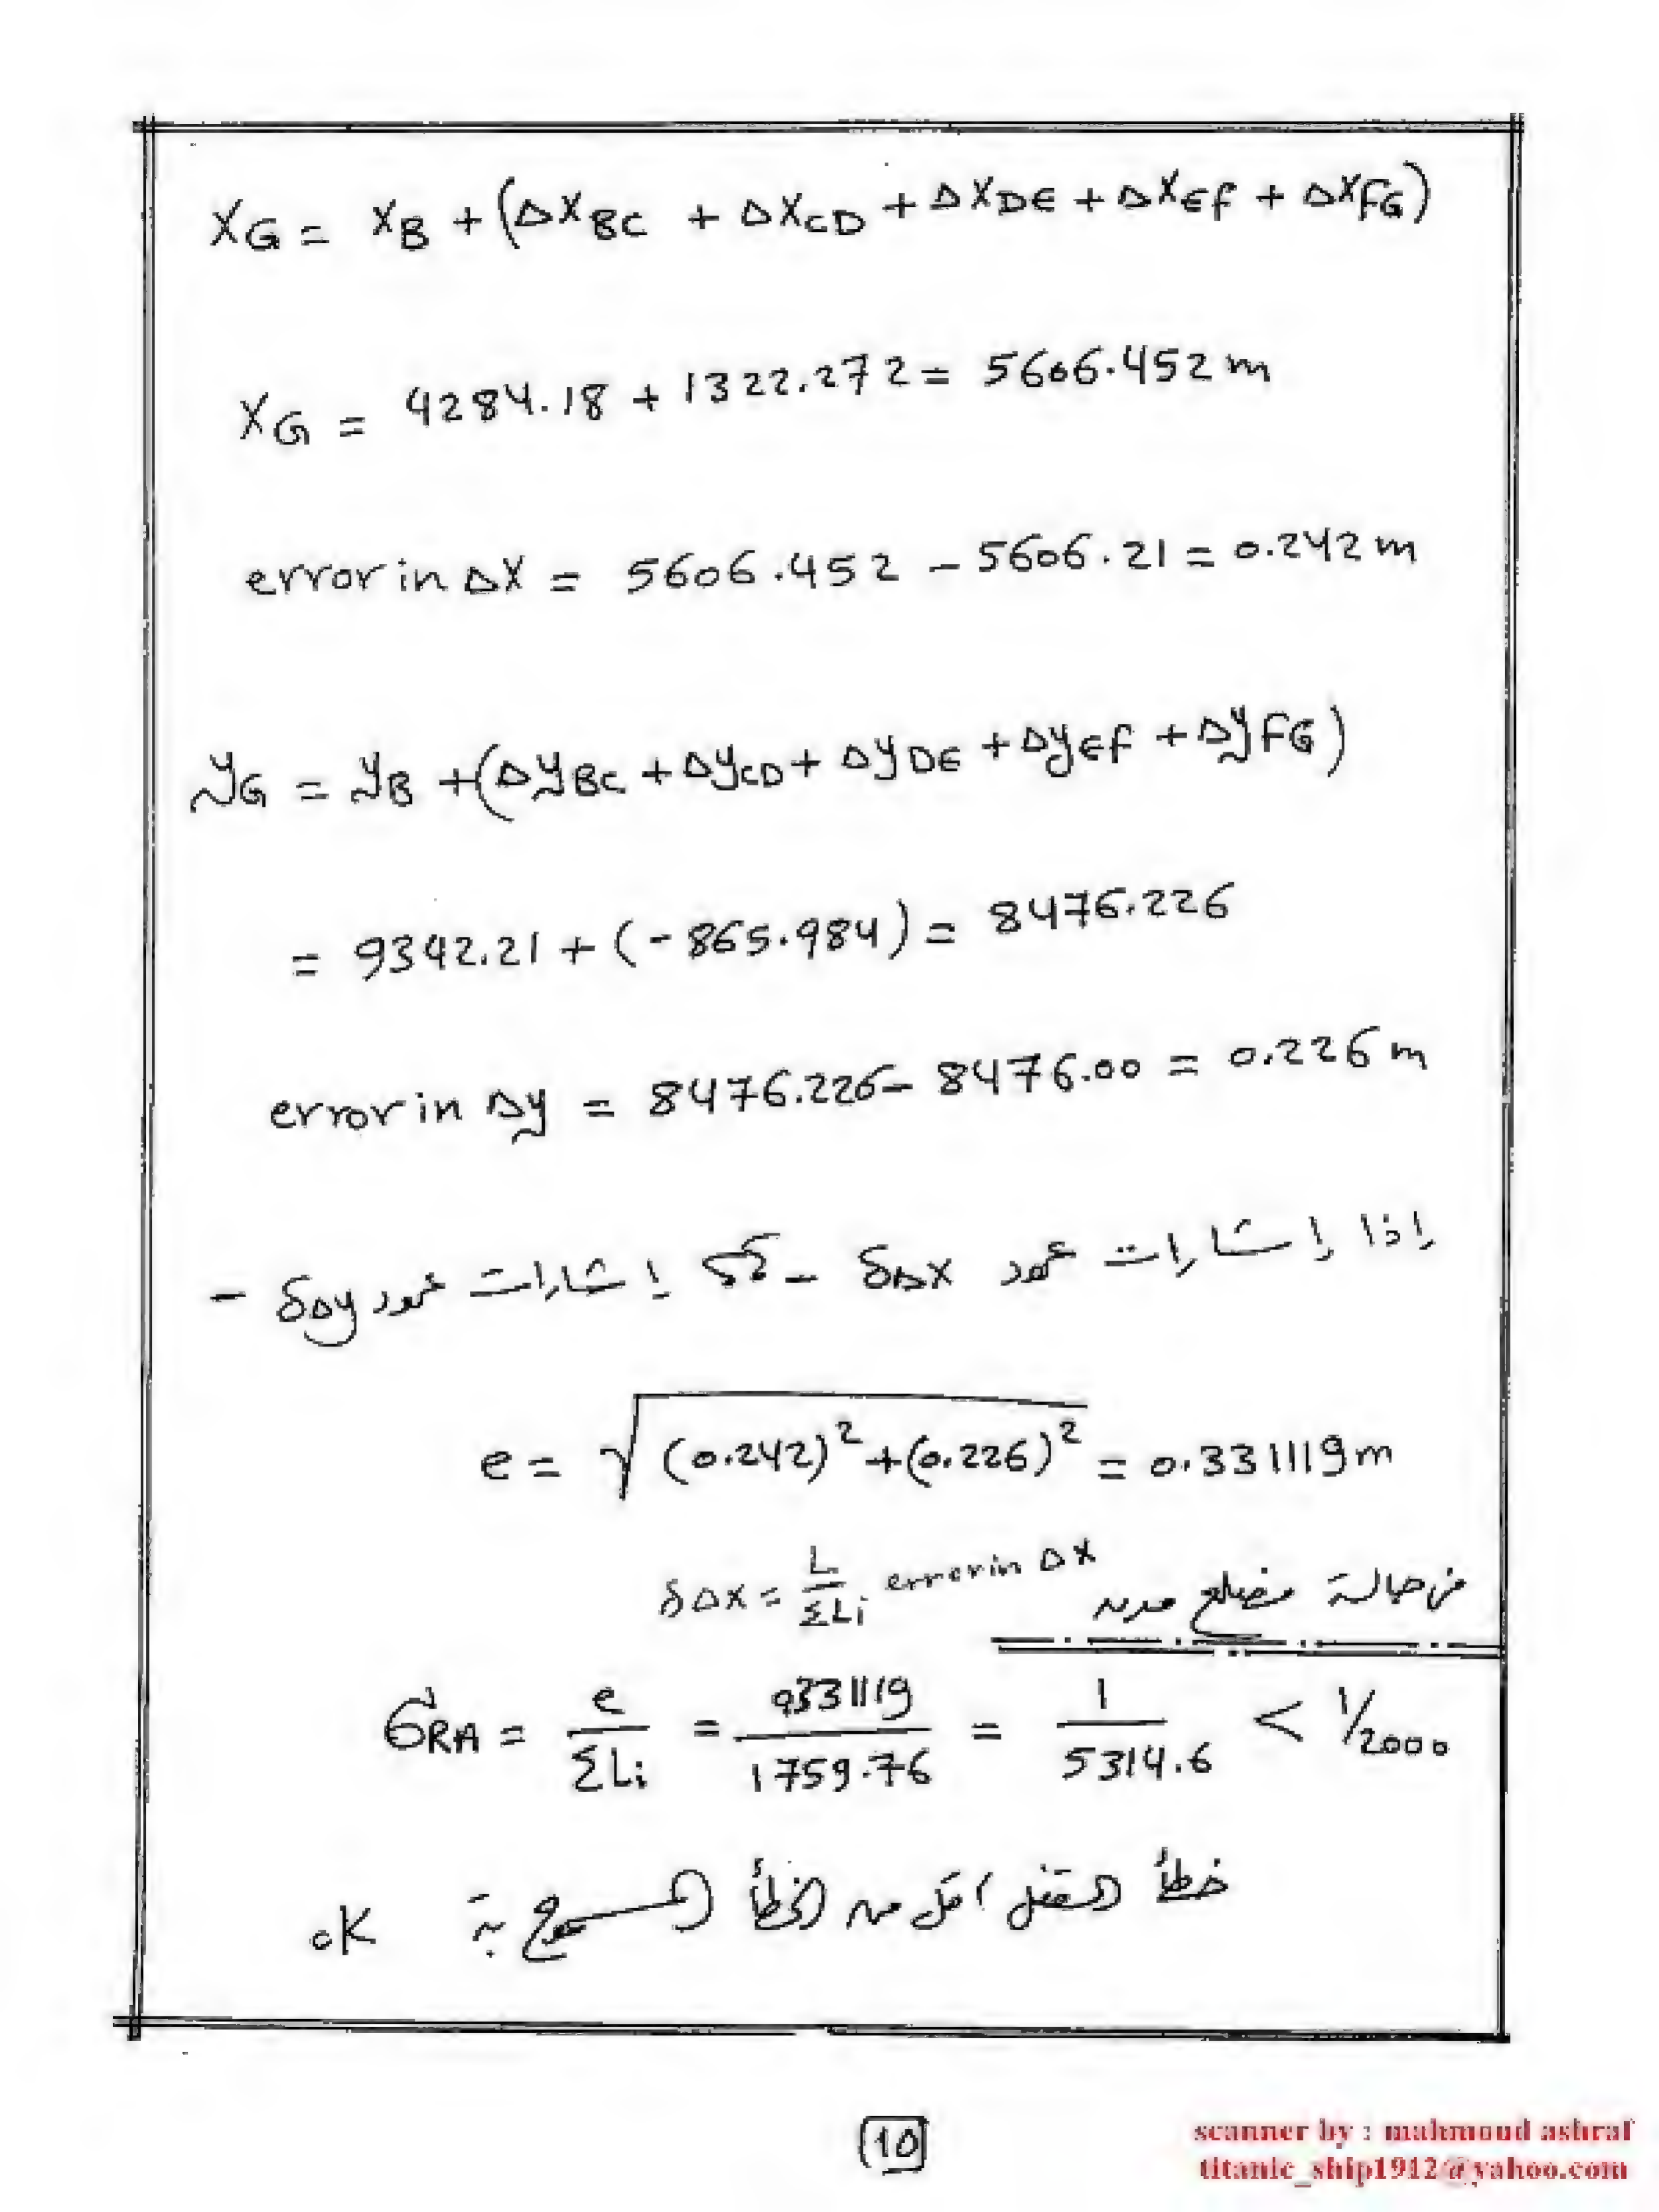 X_G = X_B + (ΔX_BC + ΔX_CD + ΔX_DE + ΔX_EF + ΔX_FG)
X_G = 4284.18 + 1322.272 = 5606.452 m
error in ΔX = 5606.452 - 5606.21 = 0.242 m
y_G = y_B + (Δy_BC + Δy_CD + Δy_DE + Δy_EF + Δy_FG)
= 9342.21 + (-865.984) = 8476.226
error in Δy = 8476.226 - 8476.00 = 0.226 m
إذا إشارات عمود δΔX - إشارات عمود δΔy -
e = √((0.242)² + (0.226)²) = 0.331119 m
فى حالة مضلع مدن δΔX = L/ΣLi error in ΔX
σ_RA = e/ΣLi = 0.331119/1759.76 = 1/5314.6 < 1/2000
خطأ القفل اقل من الخطأ المسموح به OK
10
scanner by : mahmoud ashraf
titanic_ship1912@yahoo.com